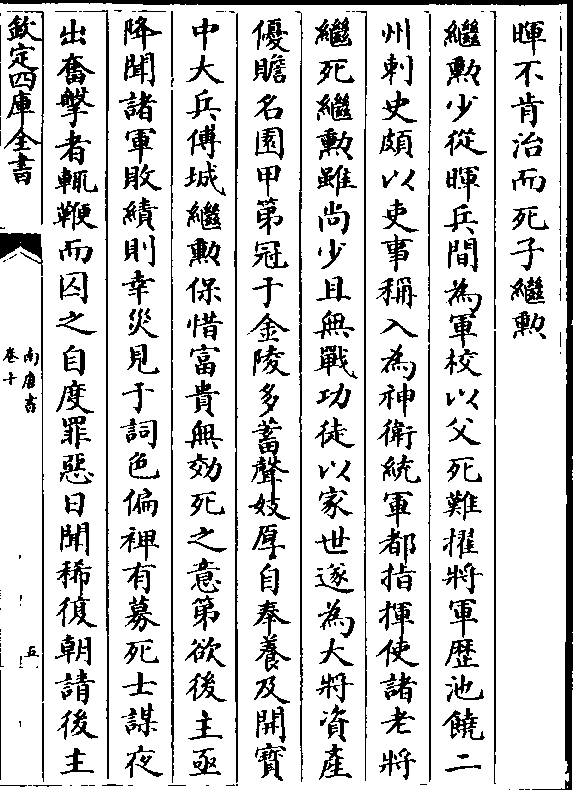 暉不肯治而死子繼勲
繼勲少從暉兵間為軍校以父死難擢將軍歴池饒二
州刺史頗以吏事稱入為神衛統軍都指揮使諸老將
繼死繼勲雖尚少且無戰功徒以家世遂為大將資產
優贍名園甲第冠于金陵多蓄聲妓厚自奉養及開寳
中大兵傅城繼勲保惜富貴無効死之意第欲後主亟
降聞諸軍敗績則幸災見于詞色偏裨有募死士謀夜
出奮擊者輒鞭而囚之自度罪惡日聞稀復朝請後主
欽定四庫全書
南唐書
卷十
五